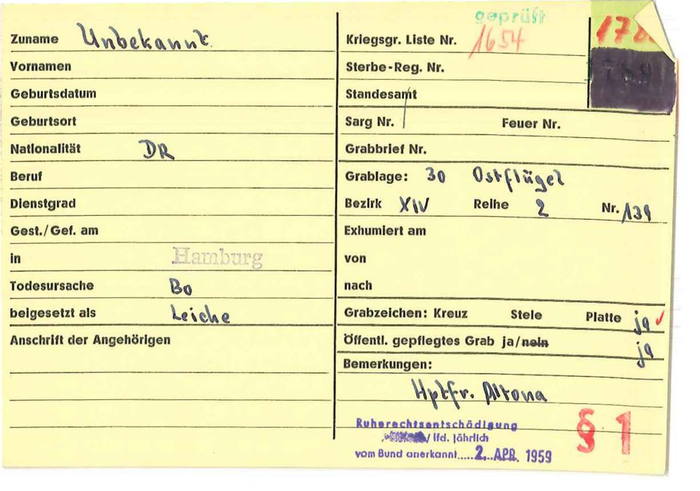 geprüft
Zuname Unbekannt.
Vornamen
Geburtsdatum
Geburtsort
Nationalität DR
Beruf
Dienstgrad
Gest./Gef. am
in Hamburg
Todesursache Bo
beigesetzt als Leiche
Anschrift der Angehörigen
Kriegsgr. Liste Nr. 1654
Sterbe-Reg. Nr.
Standesamt
Sarg Nr. Feuer Nr.
Grabbrief Nr.
Grablage: 30 Ostflügel
Bezirk XIV Reihe 2 Nr. 139
Exhumiert am
von
nach
Grabzeichen: Kreuz Stele Platte ja
Öffentl. gepflegtes Grab ja/nein ja
Bemerkungen:
Hptfr. Altona
Ruherechtsentschädigung
/ lfd. jährlich
vom Bund anerkannt..... 2. APR. 1959
§ 1